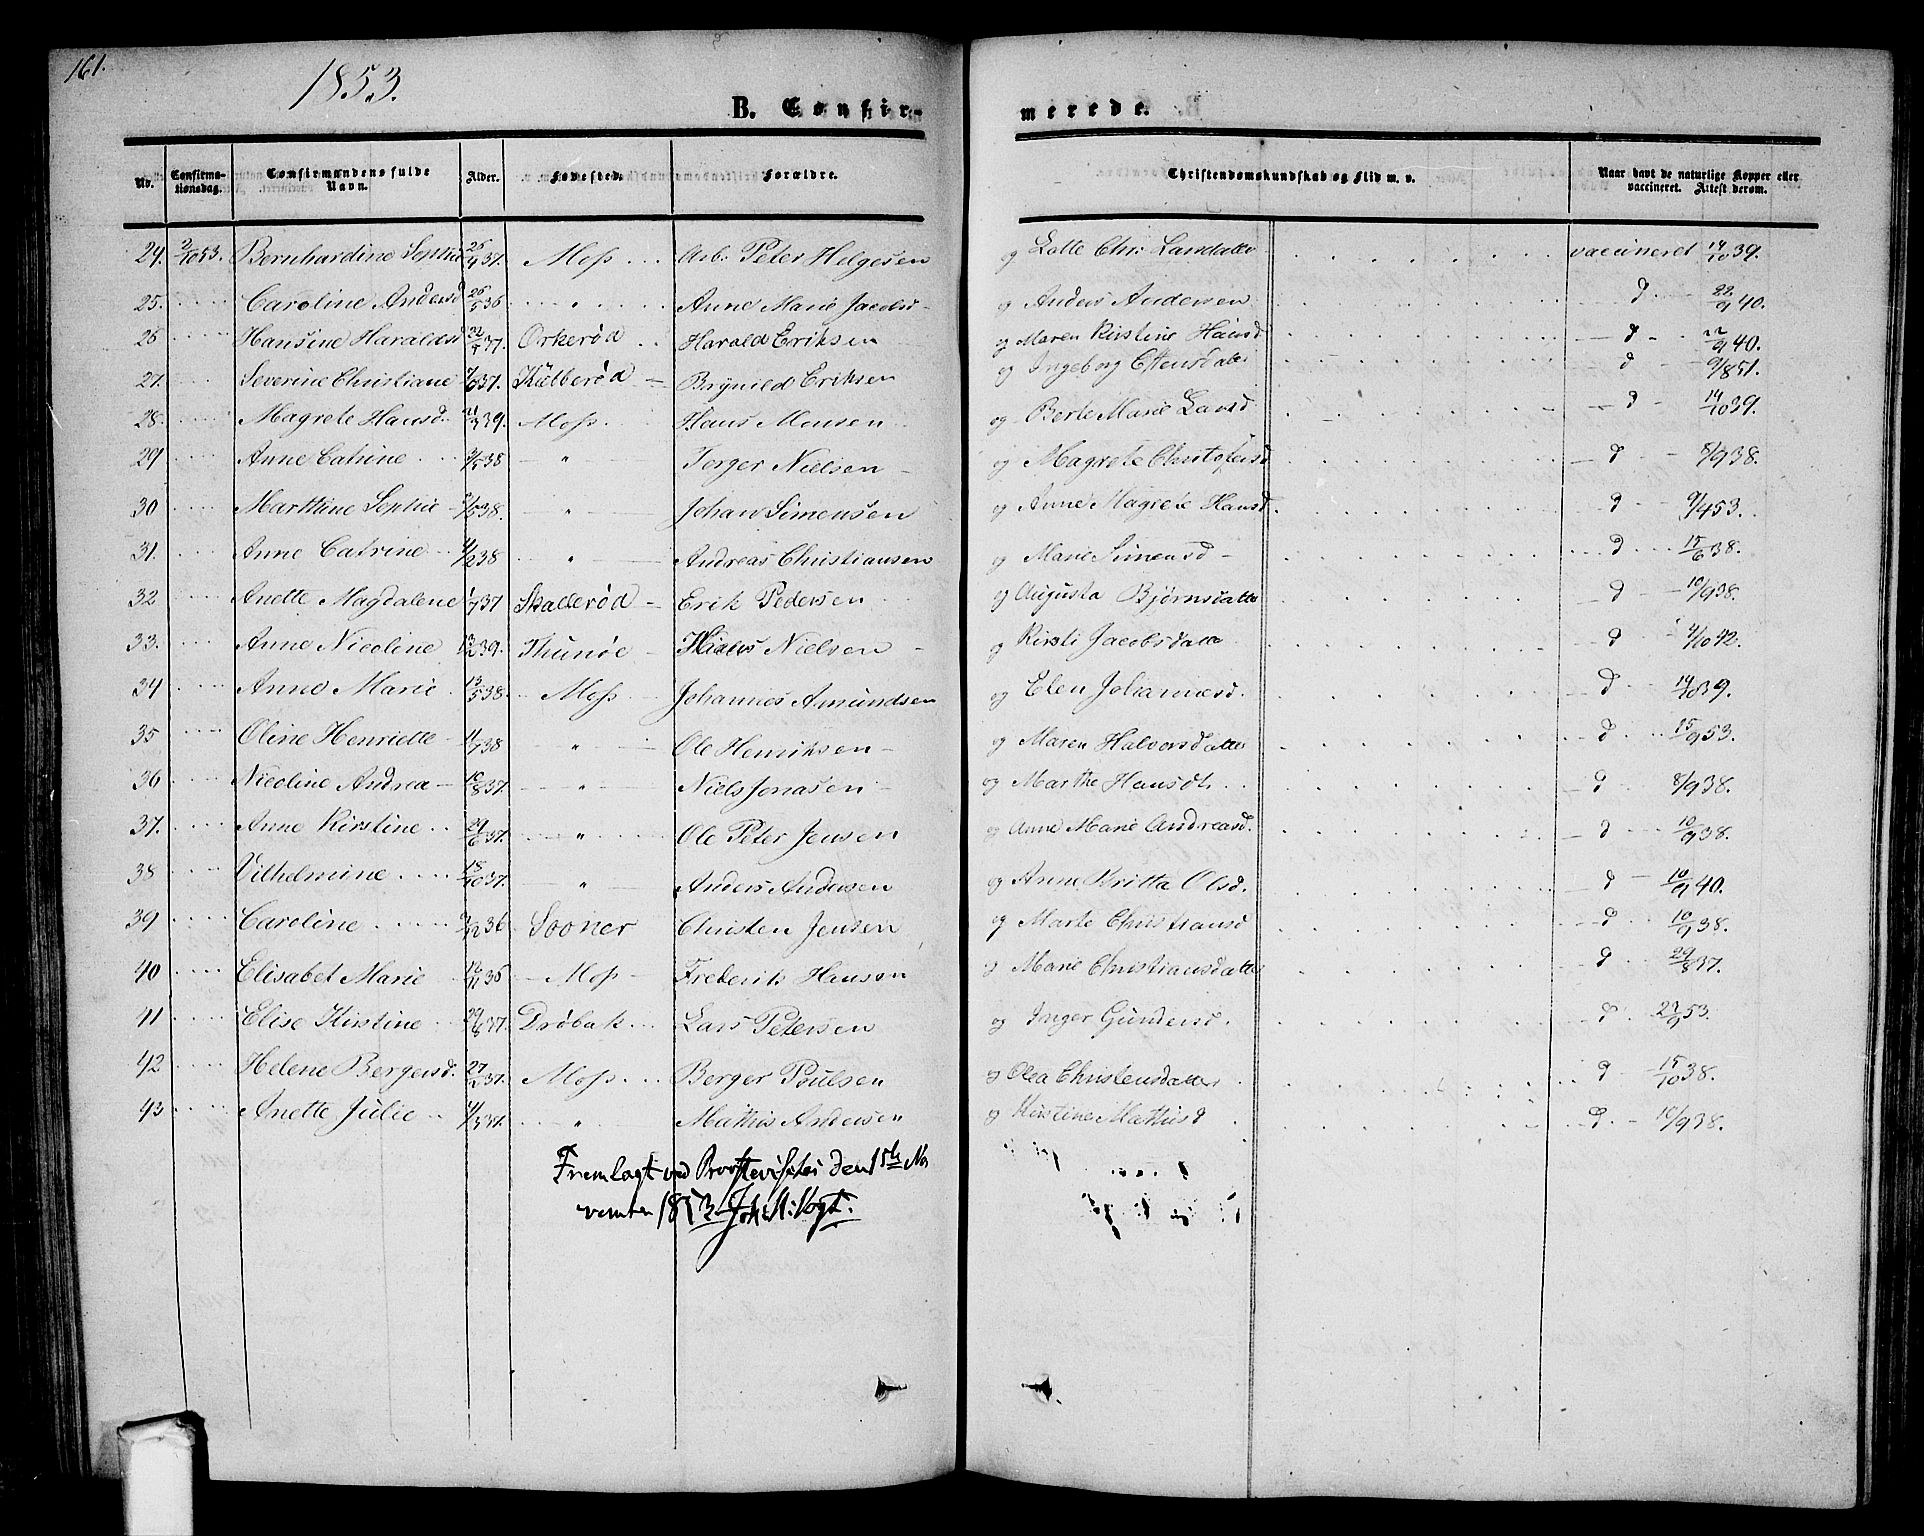 161.
1853.
B. Confirmerede.
Nr. Confirmationsdag. Confirmandens fulde Navn. Alder. Fødested. Forældre. Christendomskundskab og Flid m. v. Naar havt de naturlige Kopper eller vaccineret. Attest derom.
24. 2/10 53. Bernhardine Sophie 26/4 37. Moss Arb. Peter Helgesen og Lotte Chr. Larsdatter vaccineret 14/10 39.
25. Caroline Andersd 26/5 36 " Anne Marie Jacobsd og Anders Andersen d 22/9 40.
26 Hansine Haraldsd 37. Orkerød Harald Eriksen og Maren Kirstine Hansd d 22/9 40.
27. Severine Christiane 37. Kulberød Brynild Eriksen og Ingeborg Estensdatter d 9/8 51.
28. Magrete Hansd. 21/3 39. Moss Hans Monsen og Berte Marie Larsd d 14/10 39.
29 Anne Catrine 38 " Torger Nielsen og Magrete Christofersd d 8/9 38.
30 Marthine Sophie 38. " Johan Simensen og Anne Magrete Hansd. d 9/4 53.
31. Anne Catrine 38 " Andreas Christiansen og Marie Simensd d 15/6 38.
32 Anette Magdalene 1/7 37 Skallerød Erik Pedersen og Augusta Bjørnsdatter d 10/9 38.
33. Anne Nicoline 13/2 39. Thunøe Niels Nielsen og Kirsti Jacobsdatter d 4/10 42.
34 Anne Marie 13/5 38. Moss Johannes Amundsen og Elen Johannesd. d 14/10 39.
35 Oline Henriette 38 " Ole Henriksen og Maren Halvorsdatter d 15/9 53.
36 Nicoline Andrea 10/8 37. " Niels Jonasen og Marthe Hansdtr. d 8/9 38.
37. Anne Kirstine 29/6 37. " Ole Peter Jensen og Anne Marie Andreasd. d 10/9 38.
38 Vilhelmine 18/10 37. " Anders Andersen og Anne Britta Olsd. d 10/9 40.
39 Caroline 36 Sooner Christen Jensen og Marte Christiansd d 10/9 38.
40 Elisabet Marie 12/11 36 Moss Frederik Hansen og Marie Christiansdatter d 29/8 37.
41 Elise Kirstine 29/6 37. Drøbak Lars Petersen og Inger Gundersd. d 27/9 53.
42 Helene Bergersd. 27/2 37. Moss Berger Poulsen og Olea Christensdatter d 15/10 38.
43 Anette Julie 4/3 37. " Mathis Andersen og Kirstine Mathisd d 10/9 38.
Fremlagt ved Proostevisitas den 15de No
vember 1853 Joh. N. Vogt.